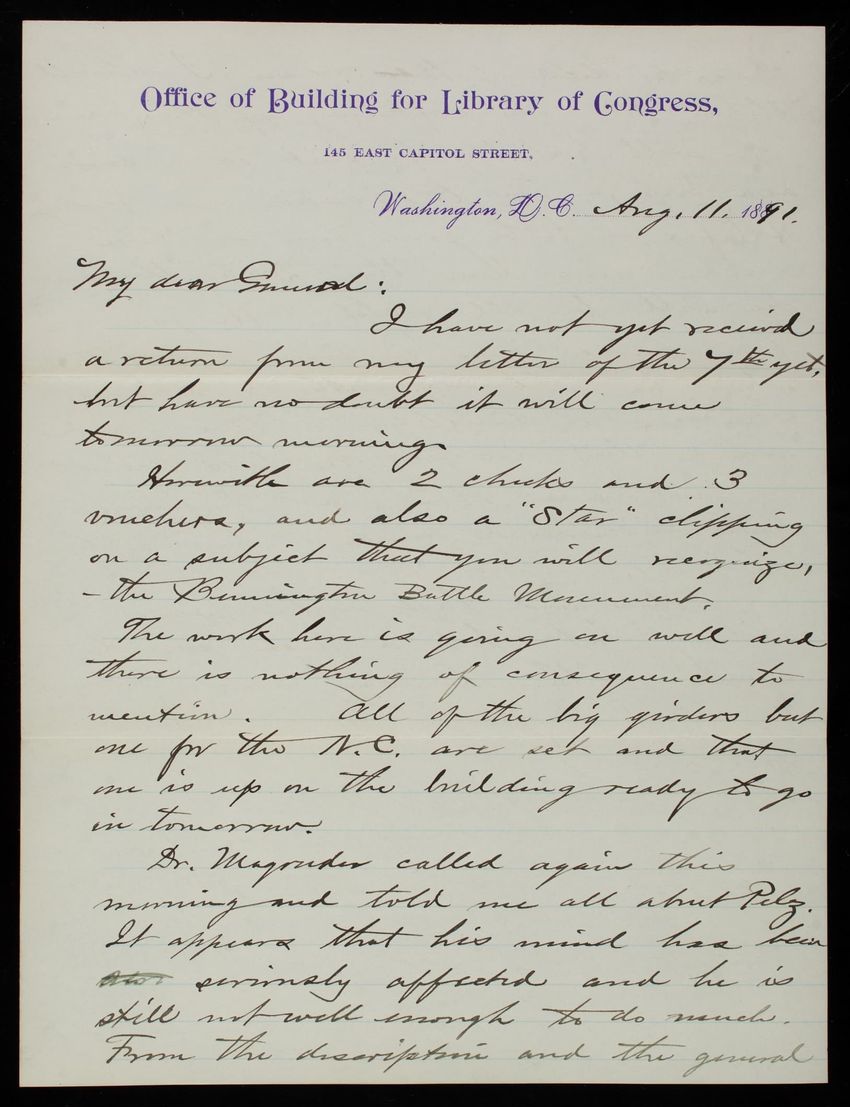 Office of Building for Library of Congress,
145 EAST CAPITOL STREET,
Washington, D.C. Aug. 11. 1891.
My dear General:
I have not yet received
a return from my letter of the 7th yet,
but have no doubt it will come
tomorrow morning.
Herewith are 2 checks and 3
vouchers, and also a "Star" clipping
on a subject that you will recognize,
- the Bennington Battle Monument.
The work here is going on well and
there is nothing of consequence to
mention. All of the big girders but
one for the N.C. are set and that
one is up on the building ready to go
in tomorrow.
Dr. Magruder called again this
morning and told me all about Pelz.
It appears that his mind has been
seriously affected and he is
still not well enough to do much.
From the description and the general